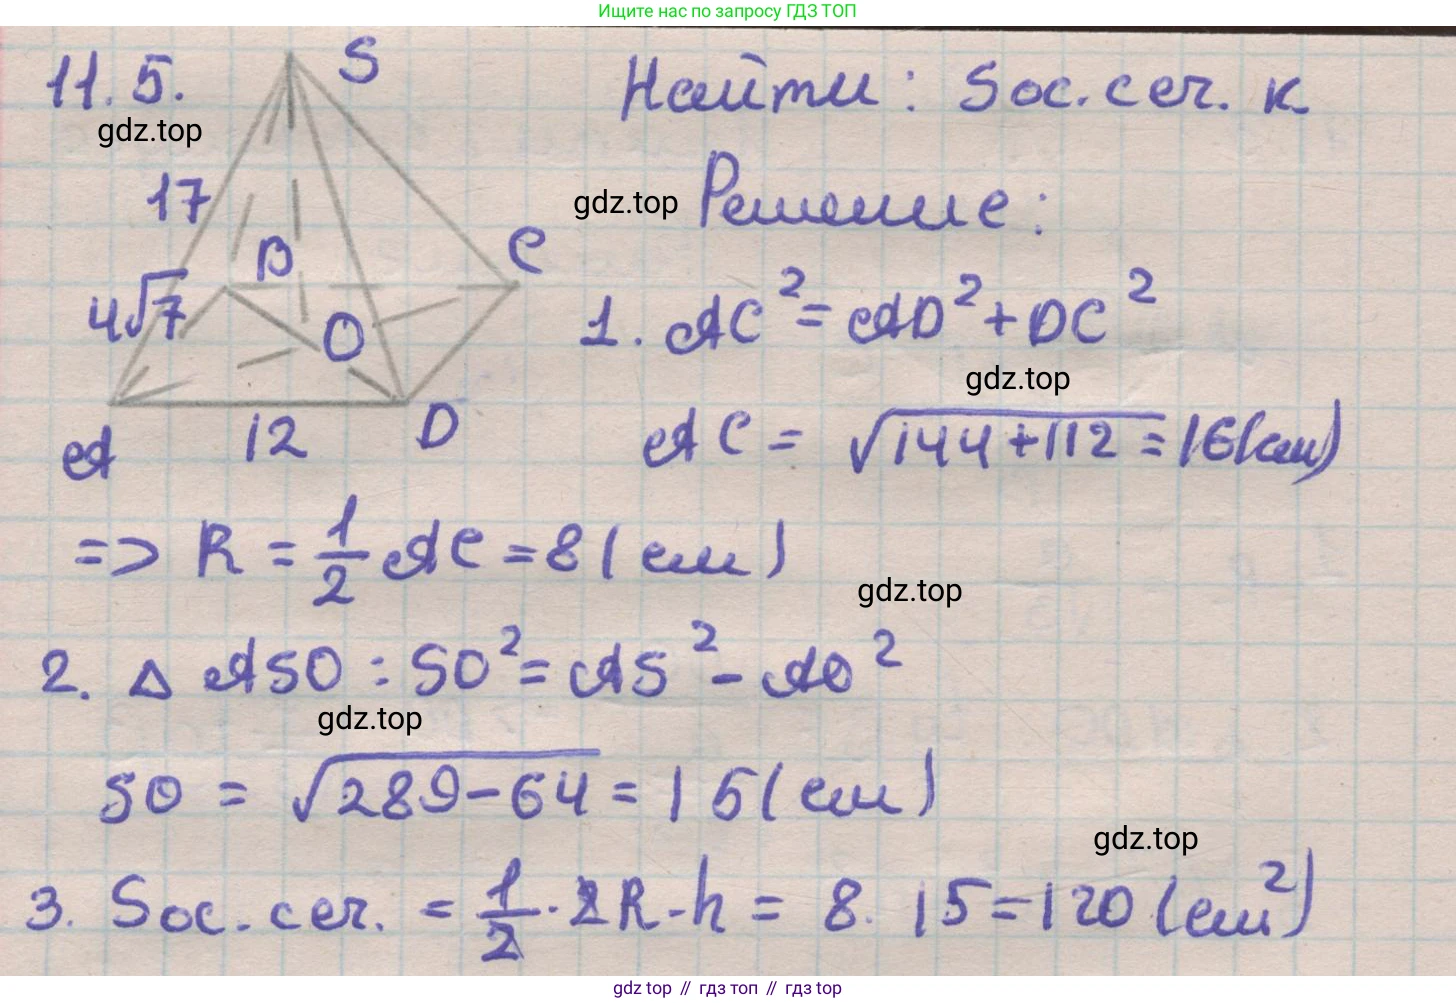 Ищите нас по запросу ГДЗ ТОП
11.5.
S
gdz.top
17
B
C
4√7
O
A
12
D
Найти: Sос.сеч. к.
gdz.top
Решение:
1. AC² = AD² + DC²
gdz.top
AC = √144+112 = 16(см)
=> R = 1/2 AC = 8 (см)
gdz.top
2. Δ ASO : SO² = AS² - AO²
gdz.top
SO = √289-64 = 15(см)
gdz.top
3. Sос.сеч. = 1/2 · 2R · h = 8 · 15 = 120 (см²)
gdz top // гдз топ // gdz top